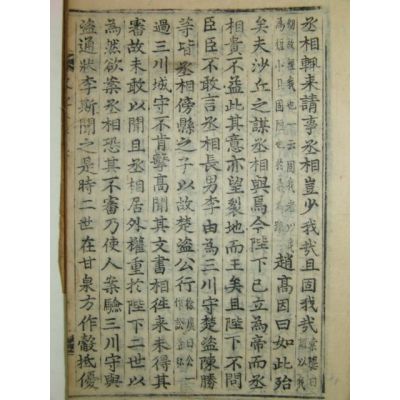 丞相輒來請事丞相豈少我哉且固我哉索隱曰以我
故輕我也一云固我者以我為短小且固陋也於義為趙高因曰如此殆
矣夫沙丘之謀丞相與焉今陛下已立為帝而丞
相貴不益此其意亦望裂地而王矣且陛下不問
臣臣不敢言丞相長男李由為三川守楚盜陳勝
等皆丞相傍縣之子以故楚盜公行徐廣曰公一作訟音松
過三川城守不肯擊高聞其文書相徃来未得其
審故未敢以聞且丞相居外權重於陛下二世以
為然欲案丞相恐其不審乃使人案驗三川守與
盜通狀李斯聞之是時二世在甘泉方作觳抵優